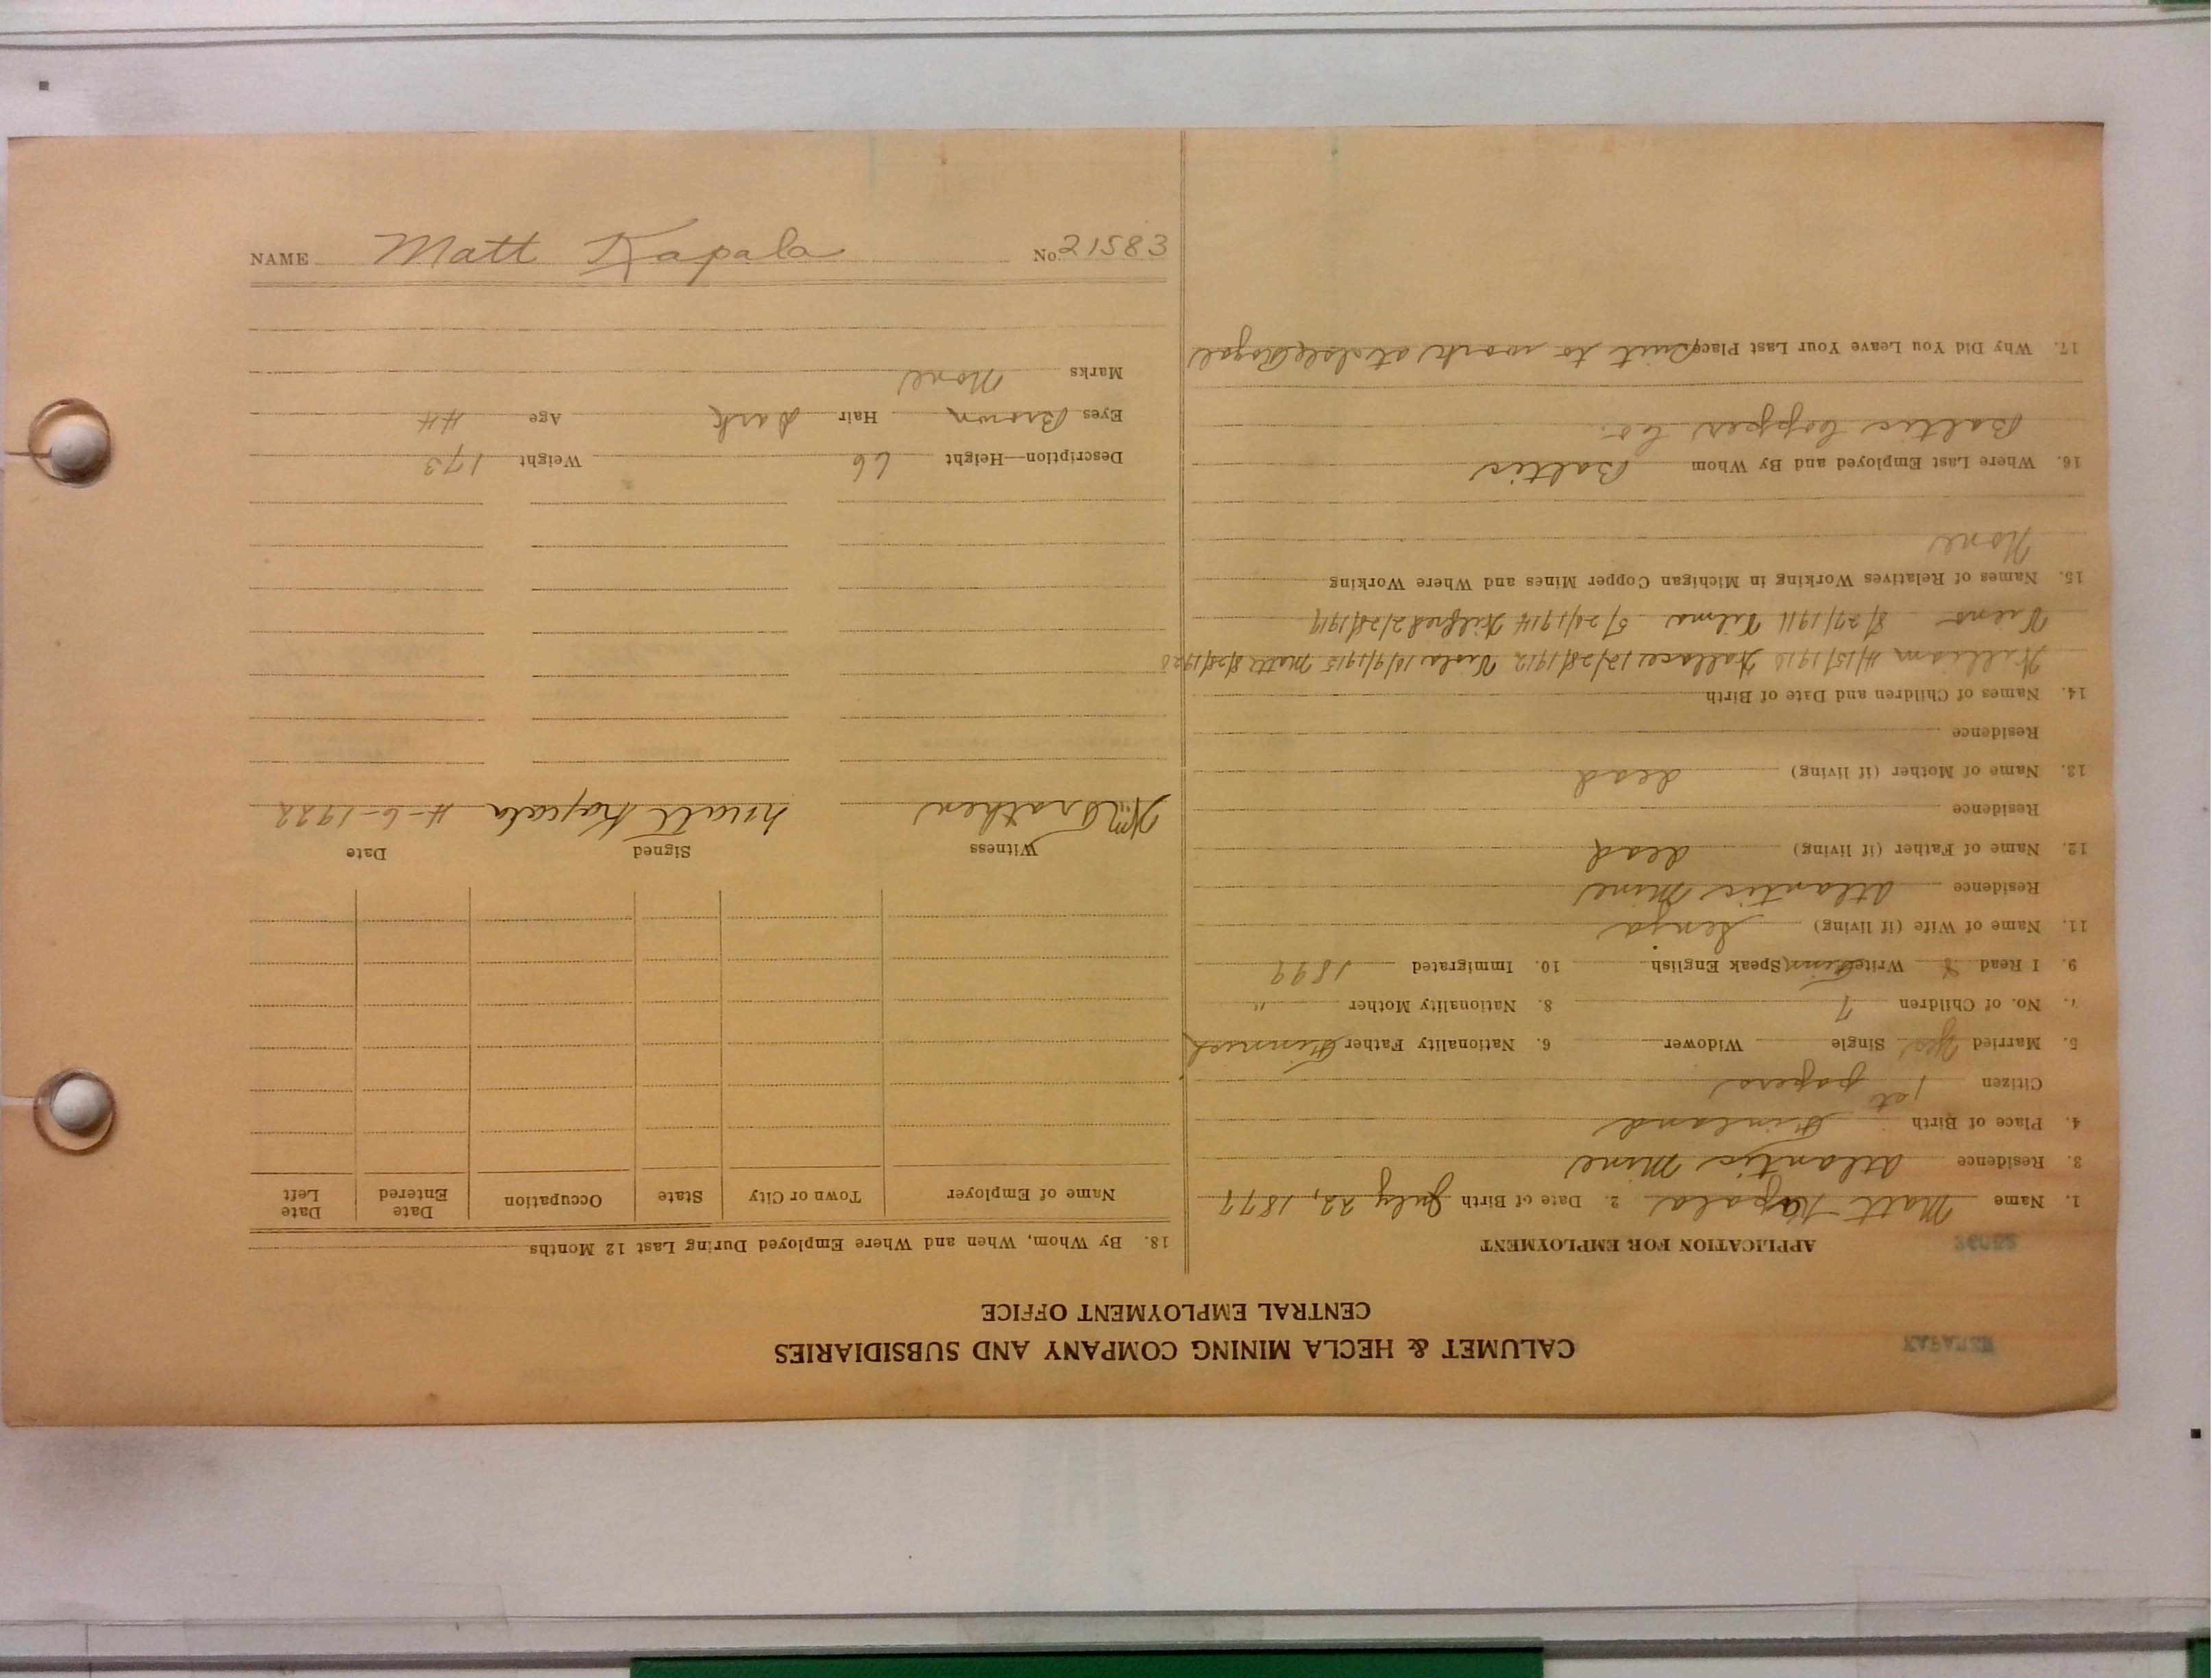 CALUMET & HECLA MINING COMPANY AND SUBSIDIARIES
CENTRAL EMPLOYMENT OFFICE
APPLICATION FOR EMPLOYMENT
1. Name Matt Kapala 2. Date of Birth July 22, 1877
3. Residence Atlantic Mine
4. Place of Birth Finland
Citizen 1st papers
5. Married Yes Single Widower 6. Nationality Father Finnish
7. No. of Children 7 8. Nationality Mother "
9. I Read & Write Finn Speak English 10. Immigrated 1899
11. Name of Wife (if living) Senja
Residence Atlantic Mine
12. Name of Father (if living) dead
Residence
13. Name of Mother (if living) dead
Residence
14. Names of Children and Date of Birth
William 4/15/1910 Wallace 12/28/1912 Viola 10/9/1915 Matt 8/28/1920
8/27/1911 Vilma 5/24/1914 Wilfred 2/28/1919
15. Names of Relatives Working in Michigan Copper Mines and Where Working
None
16. Where Last Employed and By Whom Baltic
Baltic Copper Co.
17. Why Did You Leave Your Last Place Quit to work at Isle Royal
18. By Whom, When and Where Employed During Last 12 Months
Name of Employer Town or City State Occupation Date Entered Date Left
Witness Signed Date
Matt Kapala 4-6-1922
Description—Height 66 Weight 173
Eyes Brown Hair Dark Age 44
Marks None
NAME Matt Kapala No. 21583